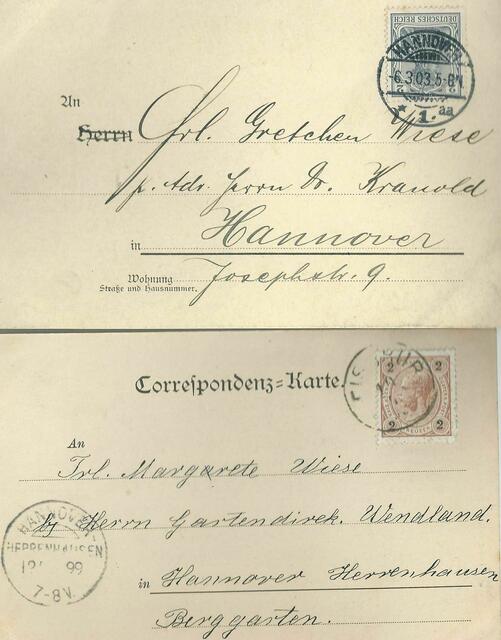 DEUTSCHES REICH
2 2
HANNOVER
-6.3.03.5-6N.
* 1. aa
An
Herrn Frl. Gretchen Wiese
p. Adr. Herrn Dr. Kranold
in Hannover
Wohnung Josephstr. 9.
Straße und Hausnummer.
Correspondenz-Karte.
2 2
2 2
An
Frl. Margarete Wiese
bz Herrn Gartendirek. Wendland.
HANNOVER-
HERRENHAUSEN
99
7-8V.
in Hannover Herrenhausen
Berggarten.